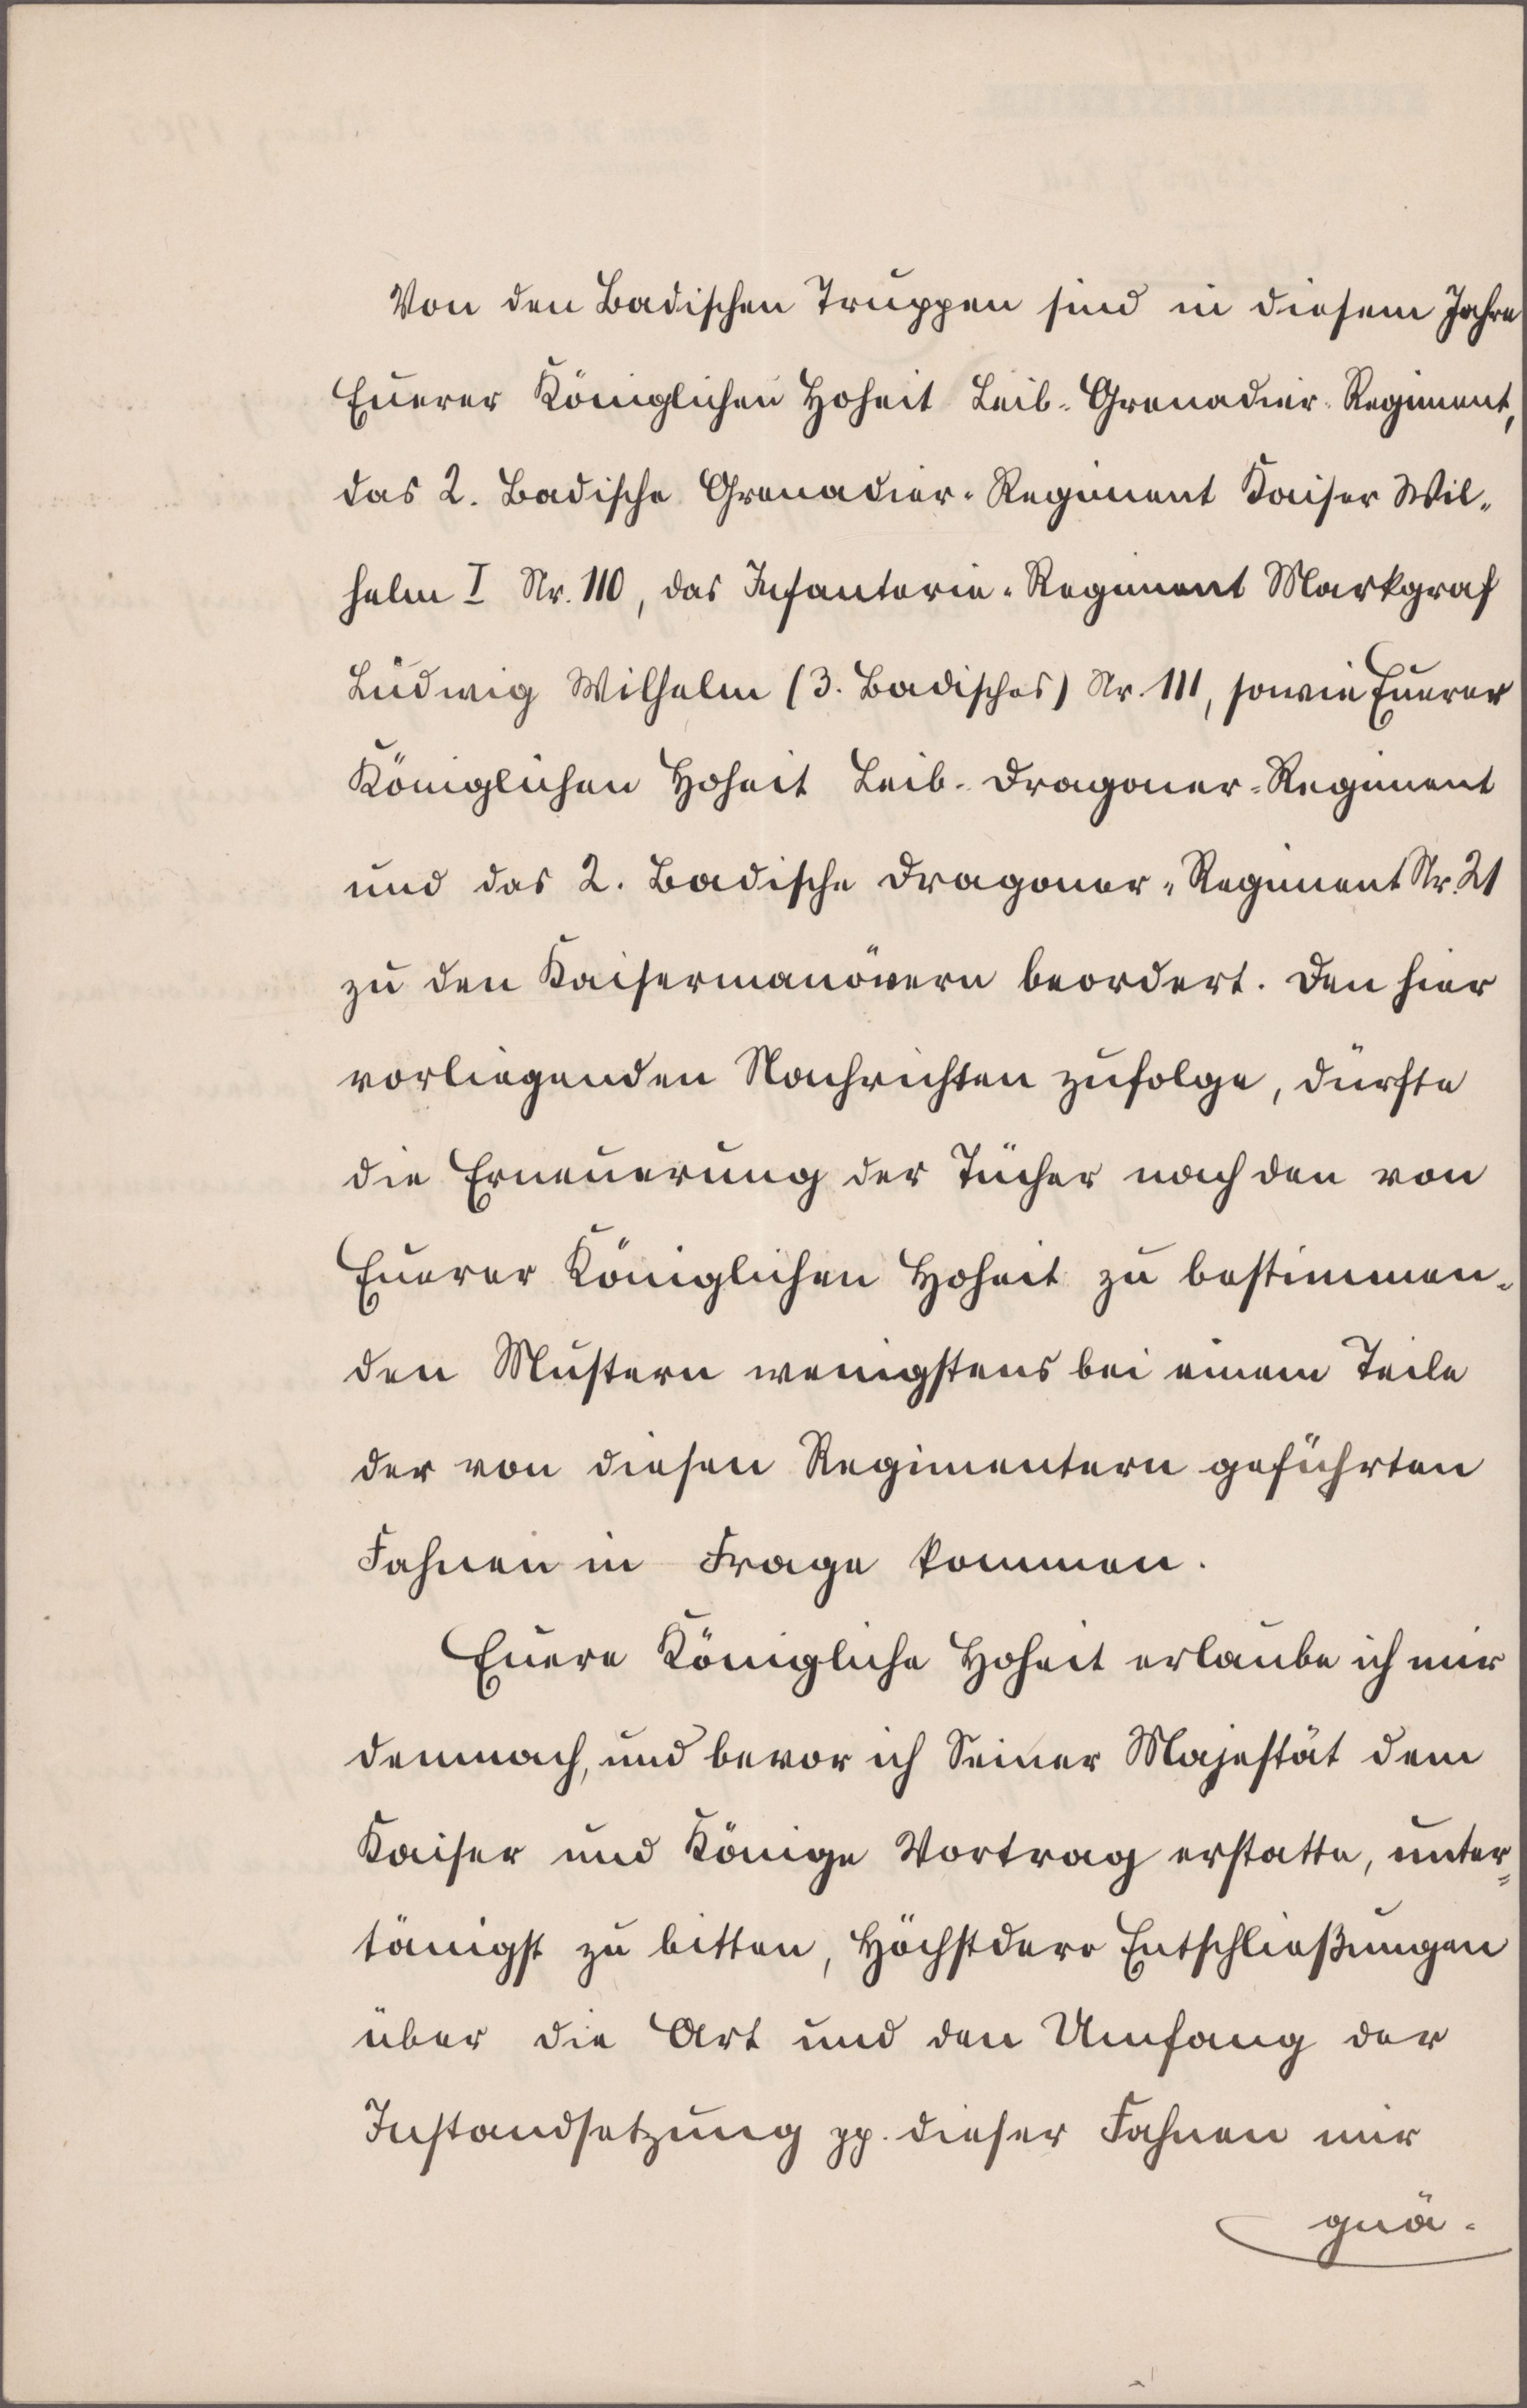 Von den Badischen Truppen sind in diesem Jahre
Euerer Königlichen Hoheit Leib-Grenadier-Regiment,
das 2. Badische Grenadier-Regiment Kaiser Wil-
helm I Nr. 110, das Infanterie-Regiment Markgraf
Ludwig Wilhelm (3. Badisches) Nr. 111, sowie Euerer
Königlichen Hoheit Leib-Dragoner-Regiment
und das 2. Badische Dragoner-Regiment Nr. 21
zu den Kaisermanövern beordert. Den hier
vorliegenden Nachrichten zufolge, dürfte
die Erneuerung der Tücher nach den von
Euerer Königlichen Hoheit zu bestimmen-
den Mustern wenigstens bei einem Teile
der von diesen Regimentern geführten
Fahnen in Frage kommen.
Euere Königliche Hoheit erlaube ich mir
demnach, und bevor ich Seiner Majestät dem
Kaiser und Könige Vortrag erstatte, unter-
tänigst zu bitten, Höchstdero Entschließungen
über die Art und den Umfang der
Instandsetzung pp. dieser Fahnen mir
gnä-